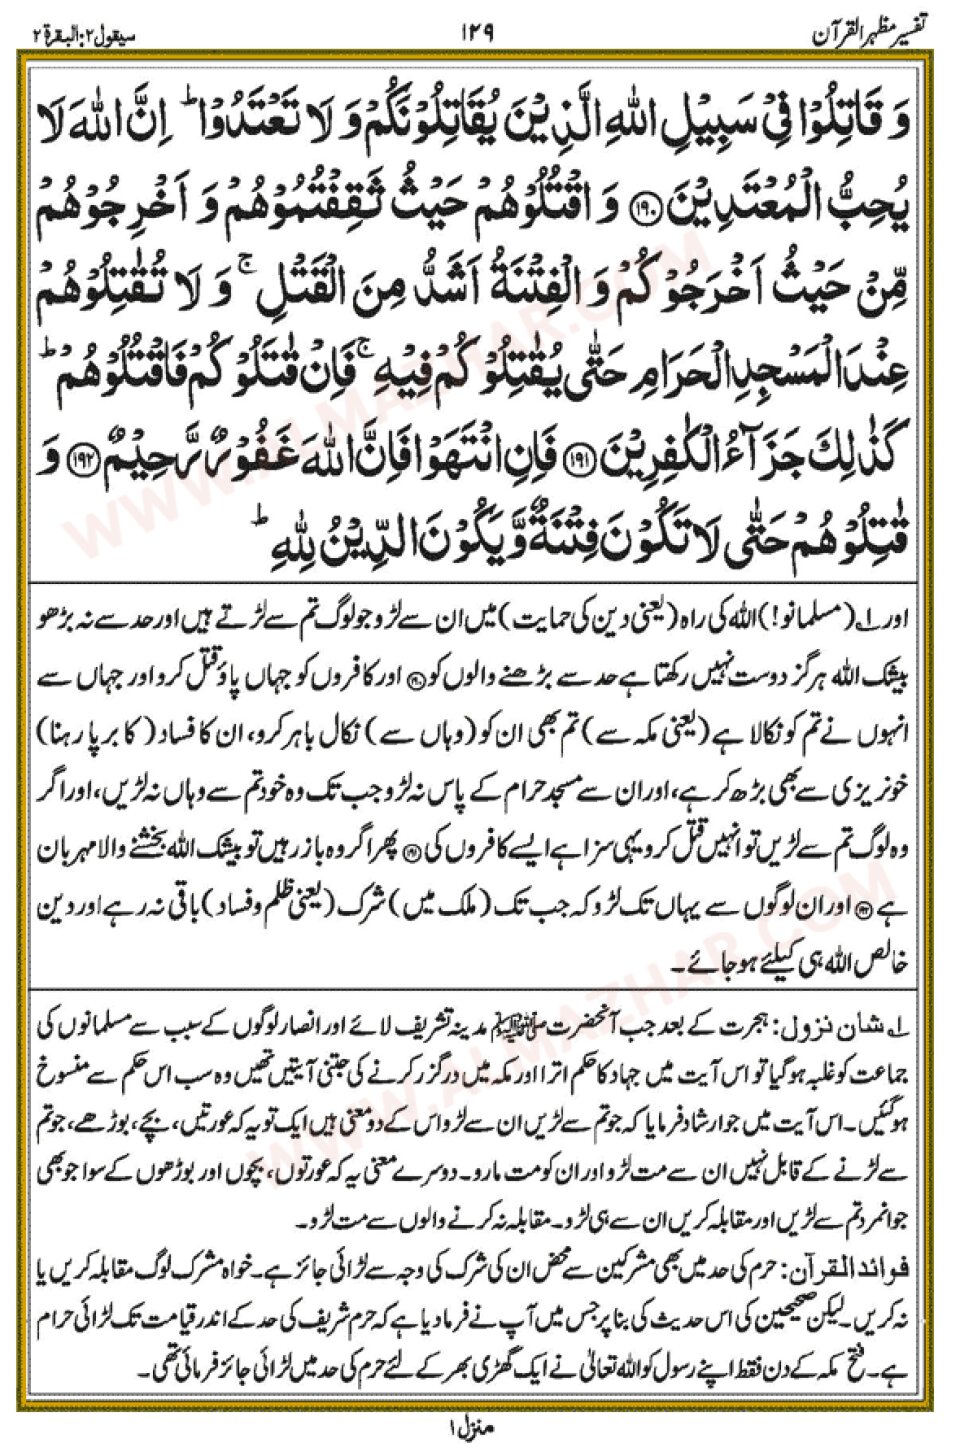 تفسیر مظہر القرآن
۱۲۹
سیقول ۲: البقرۃ ۲
وَ قَاتِلُوْا فِیْ سَبِیْلِ اللہِ الَّذِیْنَ یُقَاتِلُوْنَكُمْ وَ لَا تَعْتَدُوْا ؕ اِنَّ اللہَ لَا
یُحِبُّ الْمُعْتَدِیْنَ ﴿۱۹۰﴾ وَ اقْتُلُوْهُمْ حَیْثُ ثَقِفْتُمُوْهُمْ وَ اَخْرِجُوْهُمْ
مِّنْ حَیْثُ اَخْرَجُوْكُمْ وَ الْفِتْنَةُ اَشَدُّ مِنَ الْقَتْلِ ۚ وَ لَا تُقٰتِلُوْهُمْ
عِنْدَ الْمَسْجِدِ الْحَرَامِ حَتّٰی یُقٰتِلُوْكُمْ فِیْهِ ۚ فَاِنْ قٰتَلُوْكُمْ فَاقْتُلُوْهُمْ ؕ
كَذٰلِكَ جَزَآءُ الْكٰفِرِیْنَ ﴿۱۹۱﴾ فَاِنِ انْتَهَوْا فَاِنَّ اللہَ غَفُوْرٌ رَّحِیْمٌ ﴿۱۹۲﴾ وَ
قٰتِلُوْهُمْ حَتّٰی لَا تَكُوْنَ فِتْنَةٌ وَّ یَكُوْنَ الدِّیْنُ لِلہِ ؕ
اور ۱؎ (مسلمانو!) اللہ کی راہ (یعنی دین کی حمایت) میں ان سے لڑو جو لوگ تم سے لڑتے ہیں اور حد سے نہ بڑھو
بیشک اللہ ہرگز دوست نہیں رکھتا ہے حد سے بڑھنے والوں کو ﴿۱۹۰﴾ اور کافروں کو جہاں پاؤ قتل کرو اور جہاں سے
انہوں نے تم کو نکالا ہے (یعنی مکہ سے) تم بھی ان کو (وہاں سے) نکال باہر کرو، ان کا فساد (کا برپا رہنا)
خونریزی سے بھی بڑھ کر ہے، اور ان سے مسجد حرام کے پاس نہ لڑو جب تک وہ خود تم سے وہاں نہ لڑیں، اور اگر
وہ لوگ تم سے لڑیں تو انہیں قتل کرو یہی سزا ہے ایسے کافروں کی ﴿۱۹۱﴾ پھر اگر وہ باز رہیں تو بیشک اللہ بخشنے والا مہربان
ہے ﴿۱۹۲﴾ اور ان لوگوں سے یہاں تک لڑو کہ جب تک (ملک میں) شرک (یعنی ظلم و فساد) باقی نہ رہے اور دین
خالص اللہ ہی کیلئے ہو جائے۔
۱؎ شان نزول: ہجرت کے بعد جب آنحضرت ﷺ مدینہ تشریف لائے اور انصار لوگوں کے سبب سے مسلمانوں کی
جماعت کو غلبہ ہو گیا تو اس آیت میں جہاد کا حکم اترا اور مکہ میں درگزر کرنے کی جتنی آیتیں تھیں وہ سب اس حکم سے منسوخ
ہو گئیں۔ اس آیت میں جو ارشاد فرمایا کہ جو تم سے لڑیں ان سے لڑو اس کے دو معنی ہیں ایک تو یہ کہ عورتیں، بچے، بوڑھے، جو تم
سے لڑنے کے قابل نہیں ان سے مت لڑو اور ان کو مت مارو۔ دوسرے معنی یہ کہ عورتوں، بچوں اور بوڑھوں کے سوا جو بھی
جوانمرد تم سے لڑیں اور مقابلہ کریں ان سے ہی لڑو۔ مقابلہ نہ کرنے والوں سے مت لڑو۔
فوائد القرآن: حرم کی حد میں بھی مشرکین سے محض ان کی شرک کی وجہ سے لڑائی جائز ہے۔ خواہ مشرک لوگ مقابلہ کریں یا
نہ کریں۔ لیکن صحیحین کی اس حدیث کی بنا پر جس میں آپ نے فرما دیا ہے کہ حرم شریف کی حد کے اندر قیامت تک لڑائی حرام
ہے۔ فتح مکہ کے دن فقط اپنے رسول کو اللہ تعالیٰ نے ایک گھڑی بھر کے لئے حرم کی حد میں لڑائی جائز فرمائی تھی۔
منزل ۱
WWW.ALMAZHAR.COM
WWW.ALMAZHAR.COM